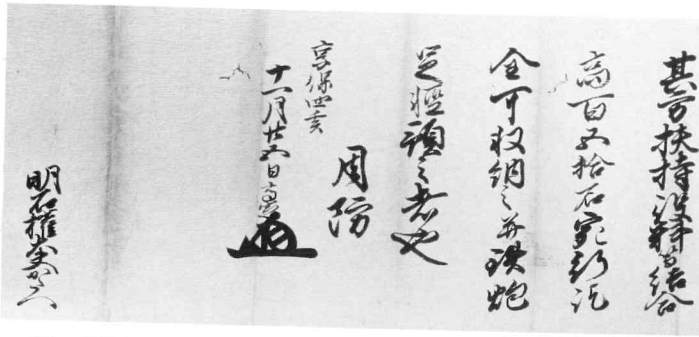 其方扶持結合
高百五拾石宛行訖
全可収納之并鉄炮
足軽預之者也
周防
享保四亥
十一月廿五日
明石権